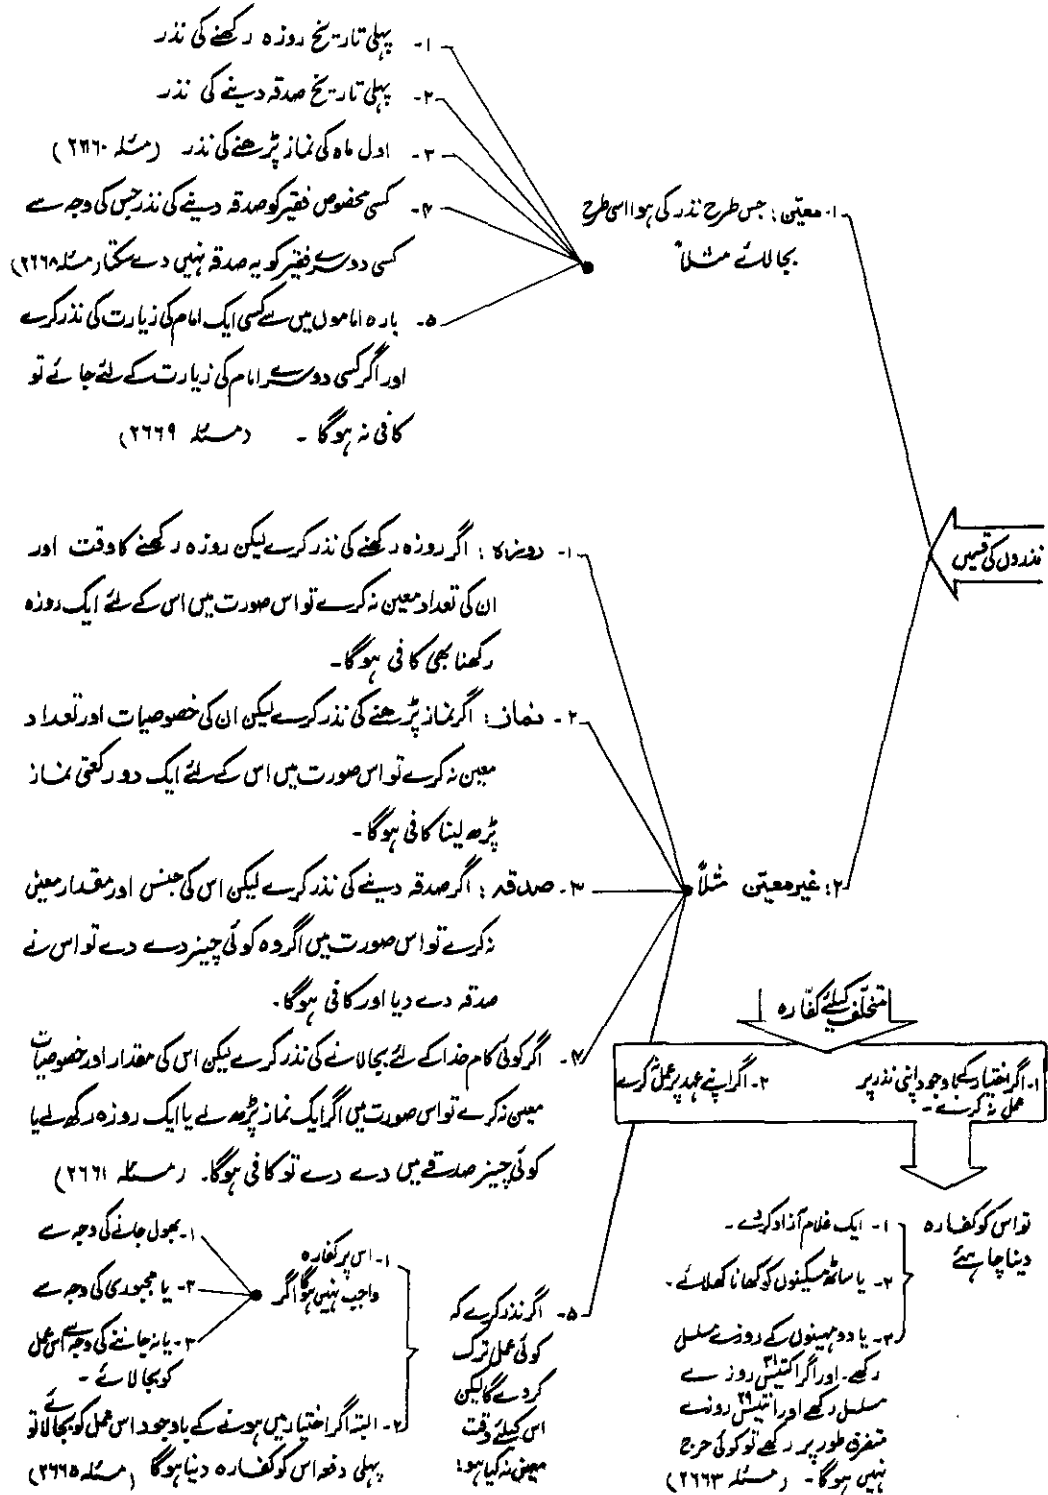 نذروں کی قسمیں
۱۔ معیّن : جس طرح نذر کی ہو اسی طرح
بجا لائے مثلاً
۱۔ پہلی تاریخ روزہ رکھنے کی نذر
۲۔ پہلی تاریخ صدقہ دینے کی نذر
۳۔ اول ماہ کی نماز پڑھنے کی نذر (مسئلہ ۲٦٦۰)
۴۔ کسی مخصوص فقیر کو صدقہ دینے کی نذر جس کی وجہ سے
کسی دوسرے فقیر کو یہ صدقہ نہیں دے سکتا (مسئلہ ۲٦٦۸)
۵۔ بارہ اماموں میں سے کسی ایک امام کی زیارت کی نذر کرے
اور اگر کسی دوسرے امام کی زیارت کے لئے جائے تو
کافی نہ ہوگا ۔ (مسئلہ ۲٦٦۹)
۲: غیر معیّن مثلاً
۱۔ روزہ : اگر روزہ رکھنے کی نذر کرے لیکن روزہ رکھنے کا وقت اور
ان کی تعداد معین نہ کرے تو اس صورت میں اس کے لئے ایک روزہ
رکھنا بھی کافی ہوگا۔
۲۔ نماز : اگر نماز پڑھنے کی نذر کرے لیکن ان کی خصوصیات اور تعداد
معین نہ کرے تو اس صورت میں اس کے لئے ایک دو رکعتی نماز
پڑھ لینا کافی ہوگا۔
۳۔ صدقہ : اگر صدقہ دینے کی نذر کرے لیکن اس کی جنس اور مقدار معین
نہ کرے تو اس صورت میں اگر وہ کوئی چیز دے دے تو اس نے
صدقہ دے دیا اور کافی ہوگا۔
۴۔ اگر کوئی کام خدا کے لئے بجا لانے کی نذر کرے لیکن اس کی مقدار اور خصوصیات
معین نہ کرے تو اس صورت میں اگر ایک نماز پڑھ لے یا ایک روزہ رکھ لے یا
کوئی چیز صدقے میں دے دے تو کافی ہوگا۔ (مسئلہ ۲٦٦۱)
۵۔ اگر نذر کرے کہ
کوئی عمل ترک
کردے گا لیکن
اس کیلئے وقت
معین نہ کیا ہو :
۱۔ اس پر کفارہ
واجب نہیں ہوگا اگر
۱۔ بھول جانے کی وجہ سے
۲۔ یا مجبوری کی وجہ سے
۳۔ یا نہ جاننے کی وجہ سے اس عمل
کو بجا لائے ۔
۲۔ البتہ اگر اختیار میں ہونے کے باوجود اس عمل کو بجا لائے تو
پہلی دفعہ اس کو کفارہ دینا ہوگا (مسئلہ ۲٦٦۵)
متخلّف کیلئے کفّارہ
۱۔ اگر اختیار کے باوجود اپنی نذر پر
عمل نہ کرے ۔
۲۔ اگر اپنے عہد پر عمل نہ کرے
تو اس کو کفارہ
دینا چاہئے
۱۔ ایک غلام آزاد کرے ۔
۲۔ یا ساٹھ مسکینوں کو کھانا کھلائے ۔
۳۔ یا دو مہینوں کے روزے مسلسل
رکھے۔ اور اگر اکتیس ۳۱ روزے
مسلسل رکھے اور انتیس ۲۹ روزے
متفرق طور پر رکھے تو کوئی حرج
نہیں ہوگا ۔ (مسئلہ ۲٦٦۳)